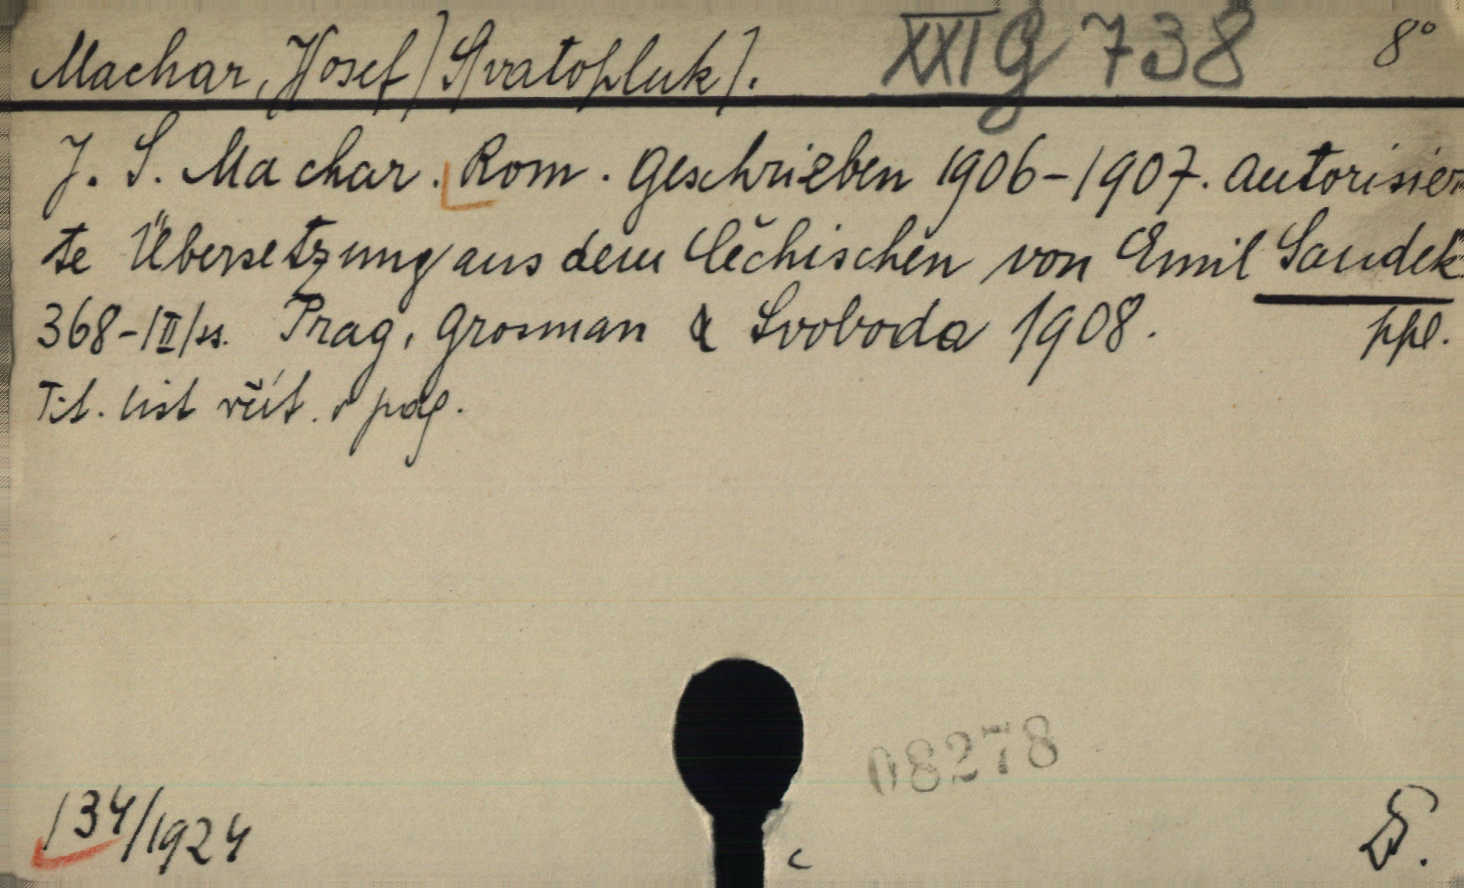 Machar, Josef /Svatopluk/. XXI G 738 8°
J. S. Machar. Rom. Geschrieben 1906-1907. Autorisier
te Übersetzung aus dem Čechischen von Emil Saudek
368-/II/ss. Prag, Grosman & Svoboda 1908. ppl.
Tit. list včít. v pag.
08278
134/1924